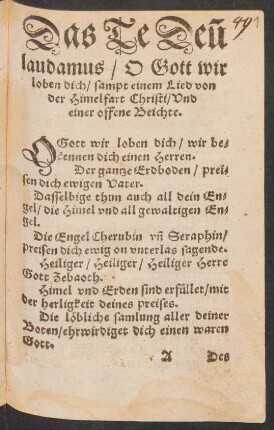 Das Te Deū
laudamus / O Gott wir
loben dich / sampt einem Lied von
der Himelfart Christi / Vnd
einer offene Beichte.
O Gott wir loben dich / wir be-
kennen dich einen Herren.
Der gantze Erdboden / prei-
sen dich ewigen Vater.
Dasselbige thun auch all dein En-
gel / die Himel vnd all gewaltigen En-
gel.
Die Engel Cherubin vn̄ Seraphin /
preisen dich ewig on vnterlas sagende.
Heiliger / Heiliger / Heiliger Herre
Gott Zebaoth.
Himel vnd Erden sind erfüllet / mit
der herligkeit deines preises.
Die löbliche samlung aller deiner
Boten / ehrwirdiget dich einen waren
Gott.
A Des